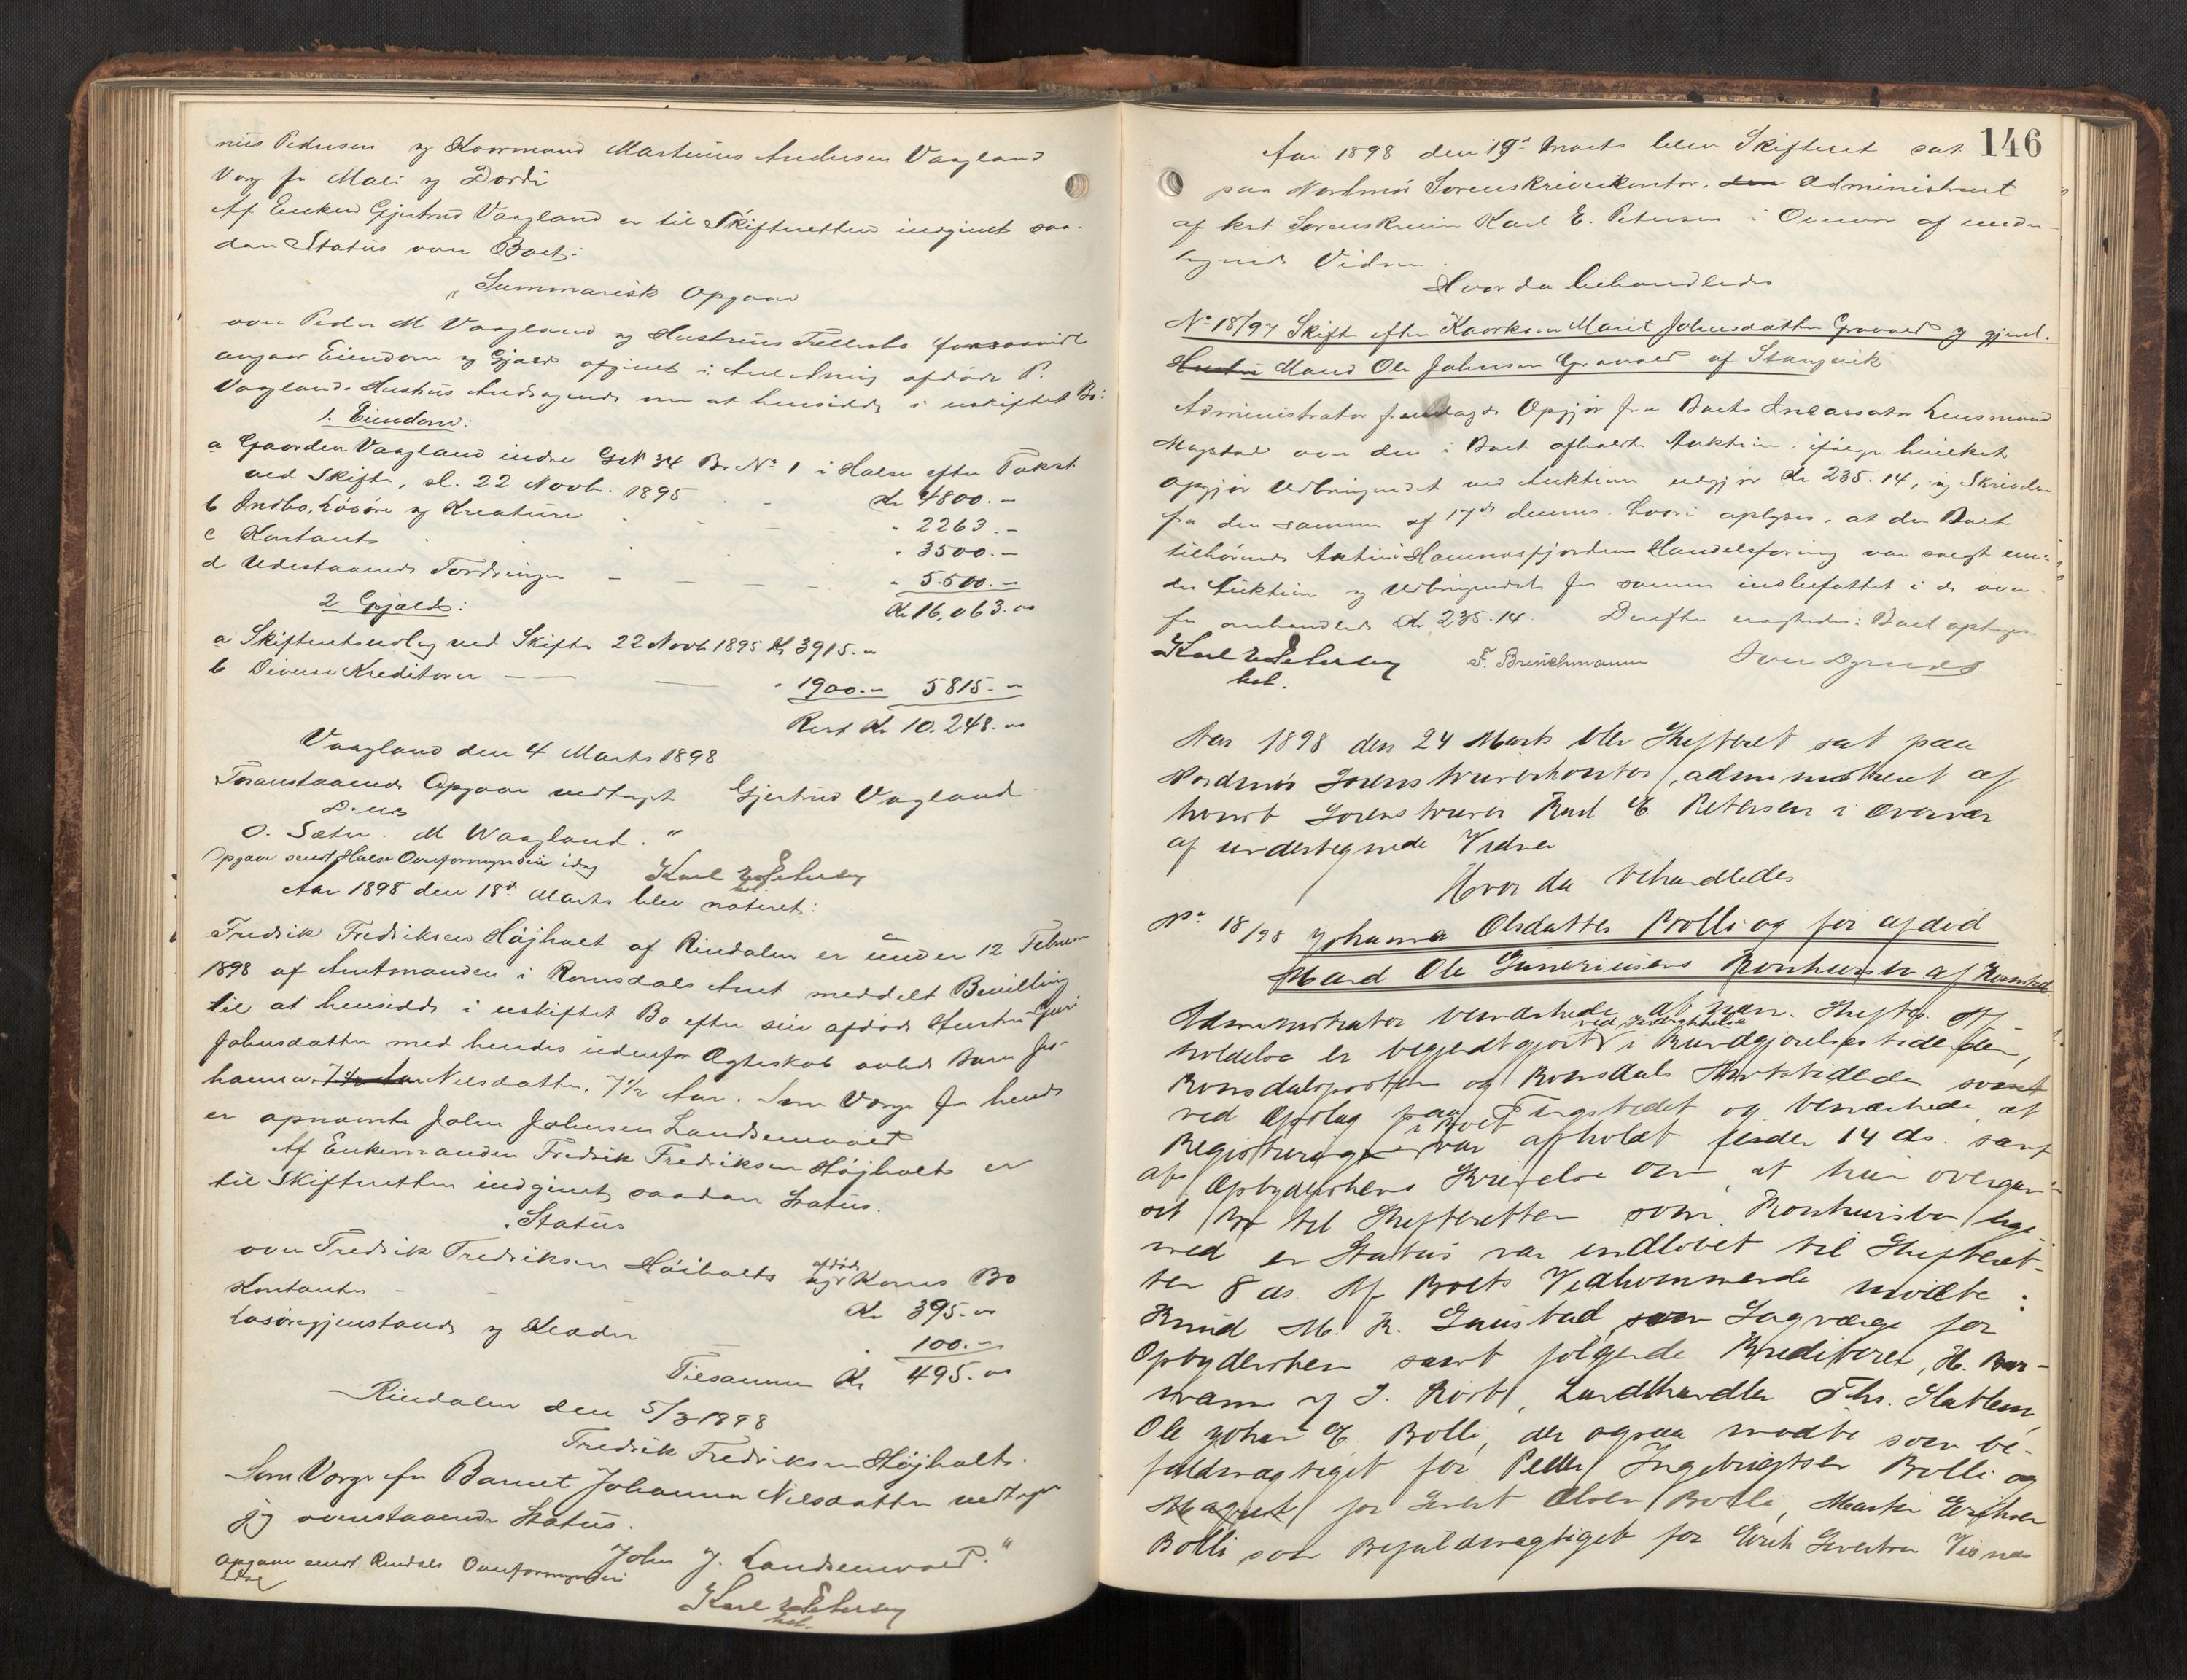 nus Pedersen og Kaarmand Martinus Andersen Vaagland
Verge for Mali og Dordi
Af Enken Gjertrud Vaagland er til Skifteretten indgivet saa-
dan Status over Boet:
"Summarisk Opgave
over Peder M Vaagland og Hustrus Fællesbo forsaavidt
angaar Eiendom og Gjæld afgivet i Anledning afdøde P.
Vaaglands Hustrus Andragende om at hensidde i uskiftet Bo:
1. Eiendom:
a Gaarden Vaagland indre GN 34 Br No 1 i Halse efter Takst
ved Skifte, sl. 22 Novb. 1895 - Kr 4800.-
b Indbo, Løsøre og Kreature - - - " 2263.-
c Kontant - - - " 3500.-
d Udestaaende Fordringer - - - - " 5.500.-
2 Gjæld: Kr 16,063.00
a Skifteudlæg ved Skifte 22 Novb 1895 Kr 3915.-
b Diverse Kreditorer - - - " 1900.- 5815.-
Rest Kr 10.248.00
Vaagland den 4 Marts 1898
Foranstaaende Opgave vedtaget Gjertrud Vagland
O. Sæter. M Waagland."
Opgave sendt Halse Overformynderi idag Karl E Petersen
kst.
Aar 1898 den 18de Marts blev noteret:
Fredrik Fredriksen Højholt af Rindalen er under 12 Februar
1898 af Amtmanden i Romsdals Amt meddelt Bevilling
til at hensidde i uskiftet Bo efter sin afdøde Hustru Guri
Johnsdatter med hendes udenfor Ægteskab avlede Barn Jo-
hanna 7½ Aar Nilsdatter, 7½ Aar. Som Verge for hende
er opnævnte John Johnsen Landsemvald
Af Enkemanden Fredrik Fredriksen Højholt er
til Skifteretten indgivet saadan Status.
"Status
over Fredrik Fredriksen Höiholts afdøde Kones Bo
Kontanter - - Kr 395.00
Løsøregjenstande og Klæder - " 100.-
Tilsammen Kr 495.00
Rindalen den 5/3 1898
Fredrik Fredriksen Højholt.
Som Verge for Barnet Johanna Nilsdatter vedtager
jeg ovenstaaende Status.
John J. Landsemvald."
Opgave sendt Rindals Overformynderi
idag
Karl E Petersen
kst.
146
Aar 1898 den 19de Marts blev Skifteret sat
paa Nordmør Sorenskriverkontor, den administreret
af kst Sorenskriver Karl E. Petersen i Overvær af under-
tegnede Vidner.
Hvor da behandledes
No 18/97 Skifte efter Kaarkone Marit Johnsdatter Gravvold og gjenl.
Hustru Mand Ole Johnsen Gravvold af Stangvik
Administrator fremlagde Opgjør fra Boets Incassator Lensmand
Mogstad over den i Boet afholdte Auktion, ifølge hvilket
Opgjør Udbringendet ved Auktion udgjør Kr 235.14, og Skrivelse
fra den samme af 17de dennes, hvori oplyses, at den Boet
tilhørende Aktie i Hamnesfjordens Handelsforening var solgt un-
der Auktion og Udbringendet for samme indbefattet i de oven-
for omhandlede Kr 235.14. Derefter eragtedes: Boet optages.
Karl E Petersen F. Brinchmann
kst.
Aar 1898 den 24 Marts blev Skifteret sat paa
Nordmør Sorenskriverkontor, administreret af
konst Sorenskriver Karl E. Petersen i Overvær
af undertegnede Vidner
Hvor da behandledes
No 18/98 Johanna Olsdatter Bolli og før afdød
Mand Ole Guneriusens Konkursbo af
Administrator bemærkede at nærv. Skifte Af-
holdelse er bekjendtgjort ved Indrykkelse i Kundgjørelsestidende,
Romsdalsposten og Romsdals Amtstidende samt
ved Opslag paa Tingstedet og bemærkede at
Registrering i Boet var afholdt under 14 ds. samt
at Opbyderskens Skrivelse om at hun overgav
sit Bo til Skifteretten som Konkursbo lige-
med er Status var indløbet til Skifteret-
ten 8 ds. Af Boets Vedkommende mødte:
Knud M. K. Gaustad, som Lagværge for
Opbydersken samt følgende Kreditorer, H. Bær-
mann og J. Roth, Landhandler Ths. Slatlem,
Ole Johan E. Bolli, der ogsaa mødte som be-
fuldmægtiget for Peder Ingebrigtsen Bolli og
Magnet for Sivert Olsen Bolli, Martin Eriksen
Bolli som Befuldmægtiget for Erik Sivertsen Visnes